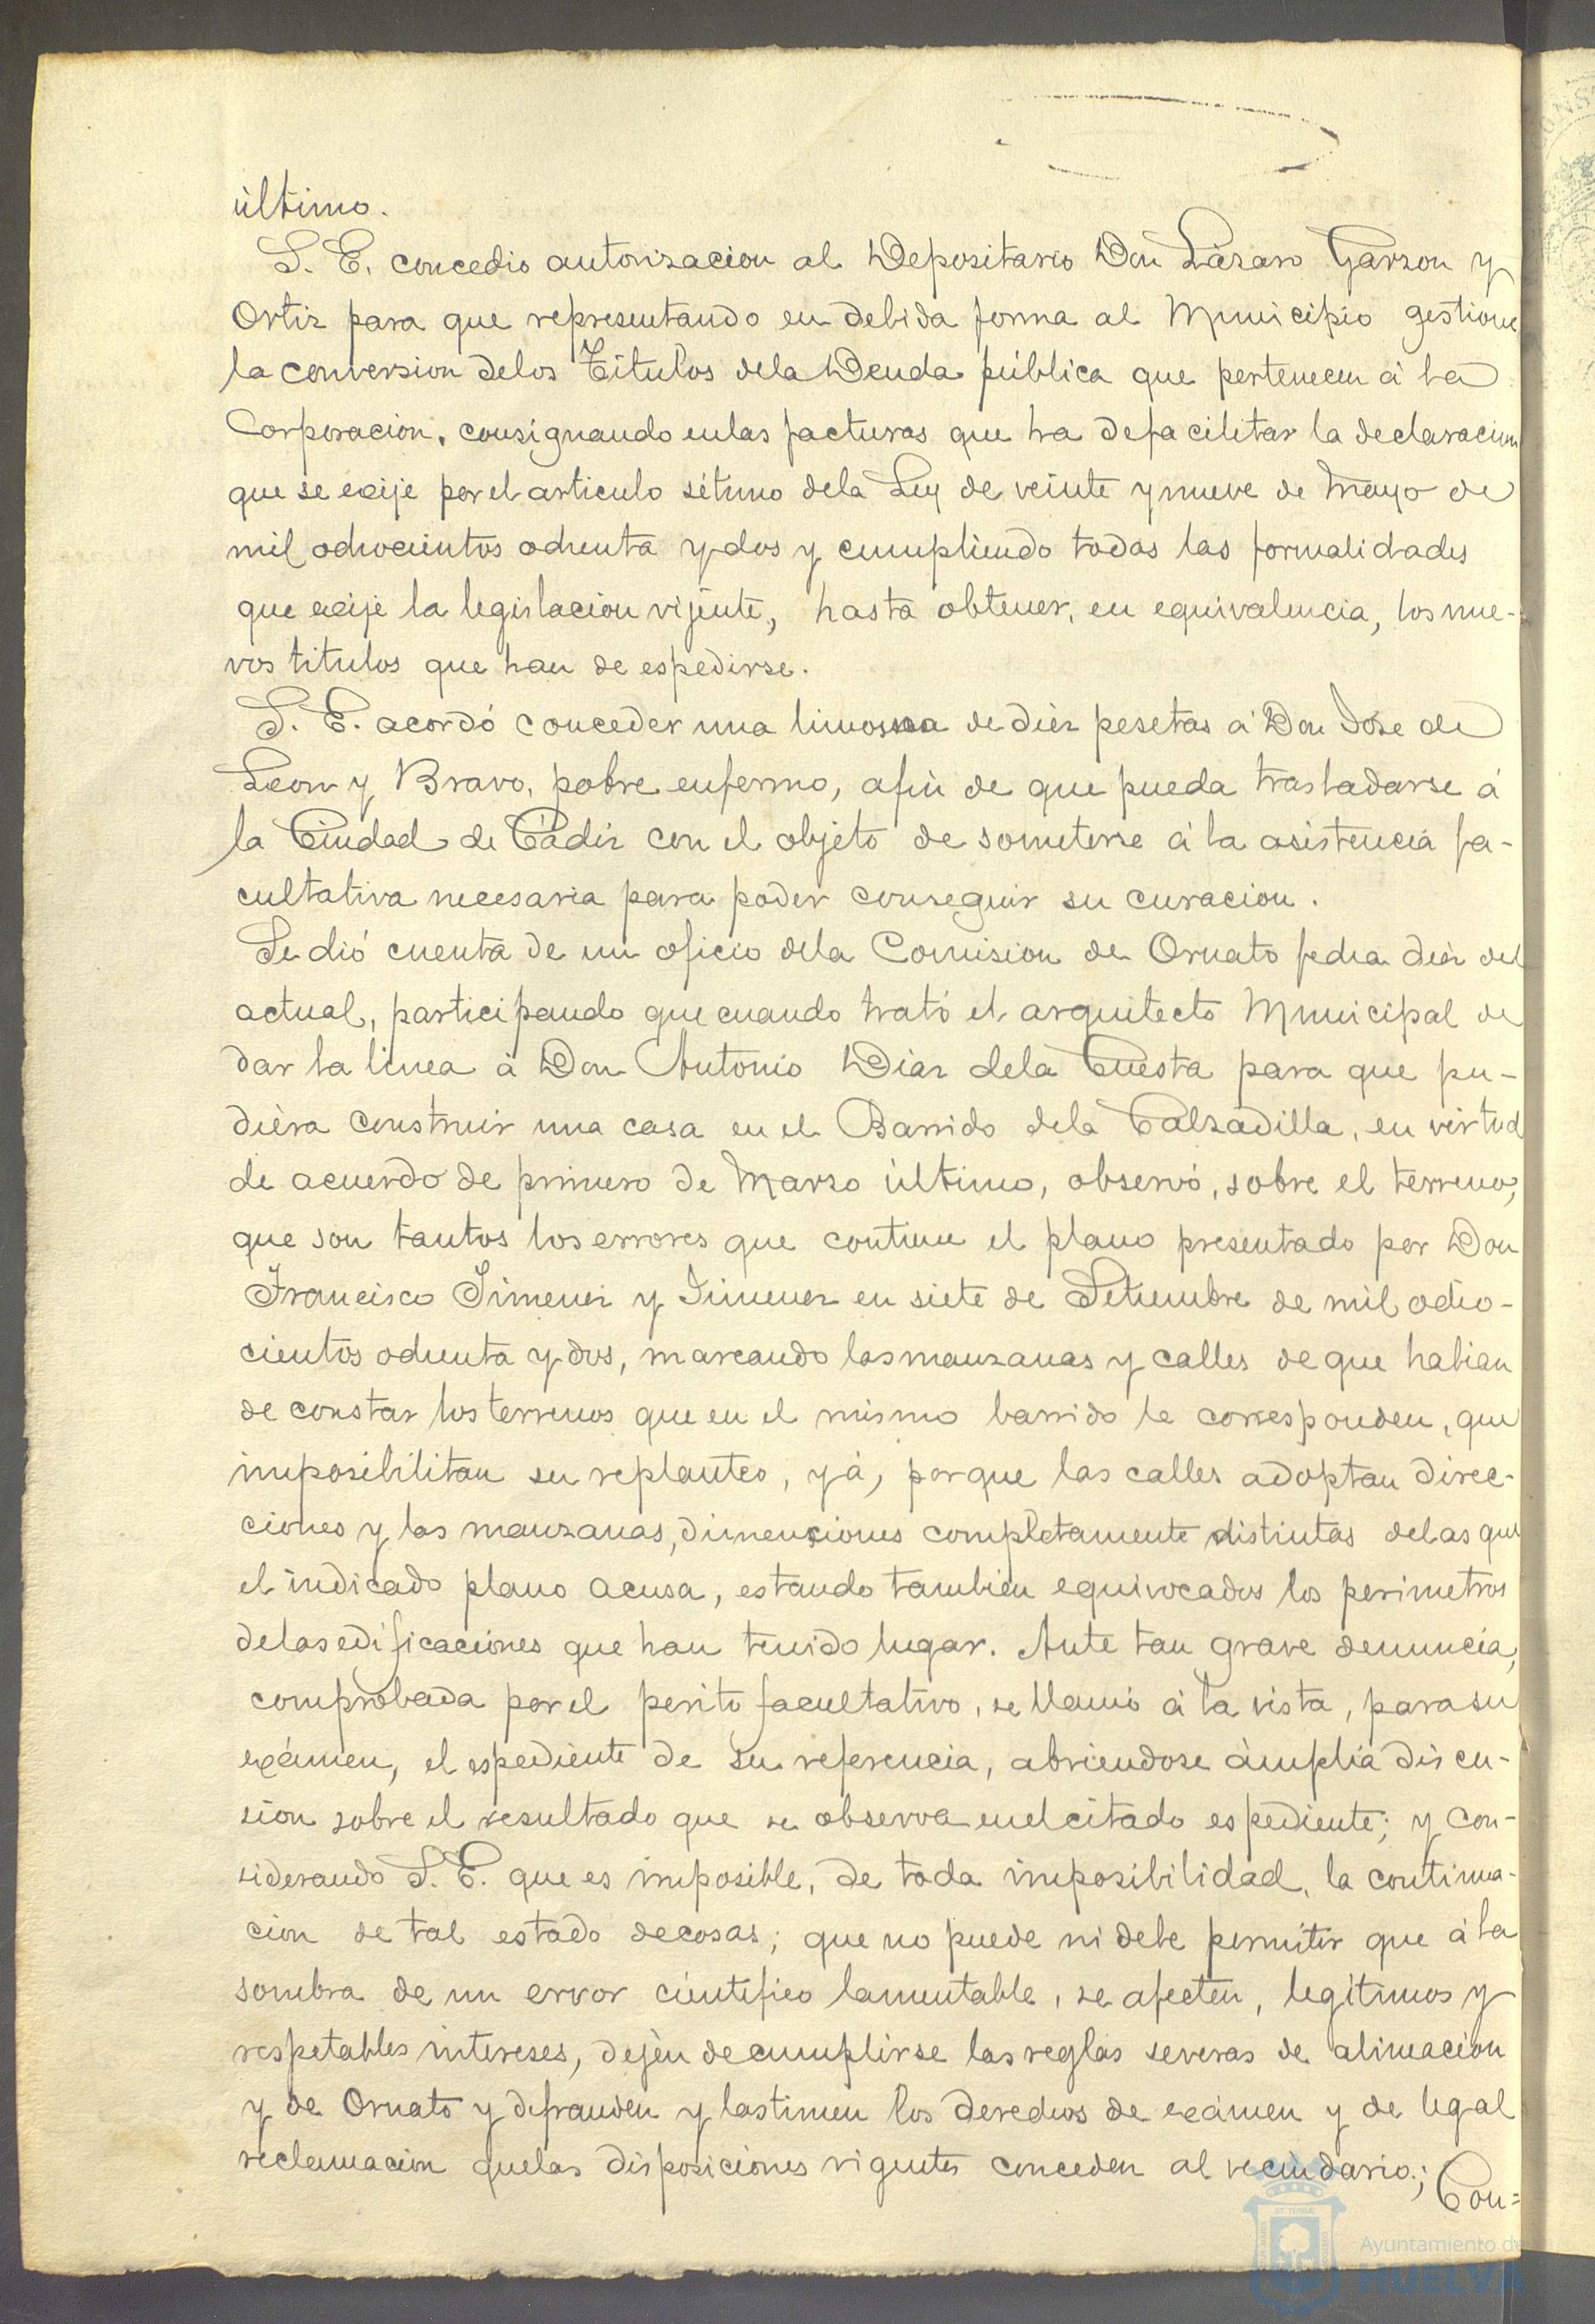 último.
S. E. concedio autorizacion al Depositario Don Lázaro Garzon y
Ortiz para que representando en debida forma al Municipio gestione
la conversion delos Títulos dela Deuda pública que pertenecen á la
Corporacion, consignando enlas facturas que ha defacilitar la declaracion
que se exije por el articulo sétimo dela Ley de veinte y nueve de Mayo de
mil ochocientos ochenta y dos y cumpliendo todas las formalidades
que exije la legislacion vijente, hasta obtener, en equivalencia, los nue-
vos titulos que han de espedirse.
S. E. acordó conceder una limosna de diez pesetas á Don José de
Leon y Bravo, pobre enfermo, afin de que pueda trasladarse á
la Ciudad de Cádiz con el objeto de someterse á la asistencia fa-
cultativa necesaria para poder conseguir su curacion.
Se dió cuenta de un oficio dela Comision de Ornato fecha diez del
actual, participando que cuando trató el arquitecto Municipal de
dar la linea á Don Antonio Diaz dela Cuesta para que pu-
diera construir una casa en el Barrido dela Calzadilla, en virtud
de acuerdo de primero de Marzo último, observó, sobre el terreno,
que son tantos los errores que contiene el plano presentado por Don
Francisco Jimenez y Jimenez en siete de Setiembre de mil ocho-
cientos ochenta y dos, marcando las manzanas y calles de que habian
de constar los terrenos que en el mismo barrido le corresponden, que
imposibilitan su replanteo, yá, porque las calles adoptan direc-
ciones y las manzanas, dimensiones completamente distintas delas que
el indicado plano acusa, estando tambien equivocados los perimetros
delas edificaciones que han tenido lugar. Ante tan grave denuncia,
comprobada por el perito facultativo, se llamó á la vista, para su
exámen, el espediente de su referencia, abriendose ámplia discu-
sion sobre el resultado que se observa enel citado espediente; y con-
siderando S. E. que es imposible, de toda imposibilidad, la continua-
cion de tal estado decosas; que no puede ni debe permitir que á la
sombra de un error cientifico lamentable, se afecten, legítimos y
respetables intereses, dejen decumplirse las reglas severas de alineacion
y de Ornato y defrauden y lastimen los derechos de exámen y de legal
reclamacion quelas disposiciones vigentes conceden al vecindario; Con=
Ayuntamiento de
HUELVA